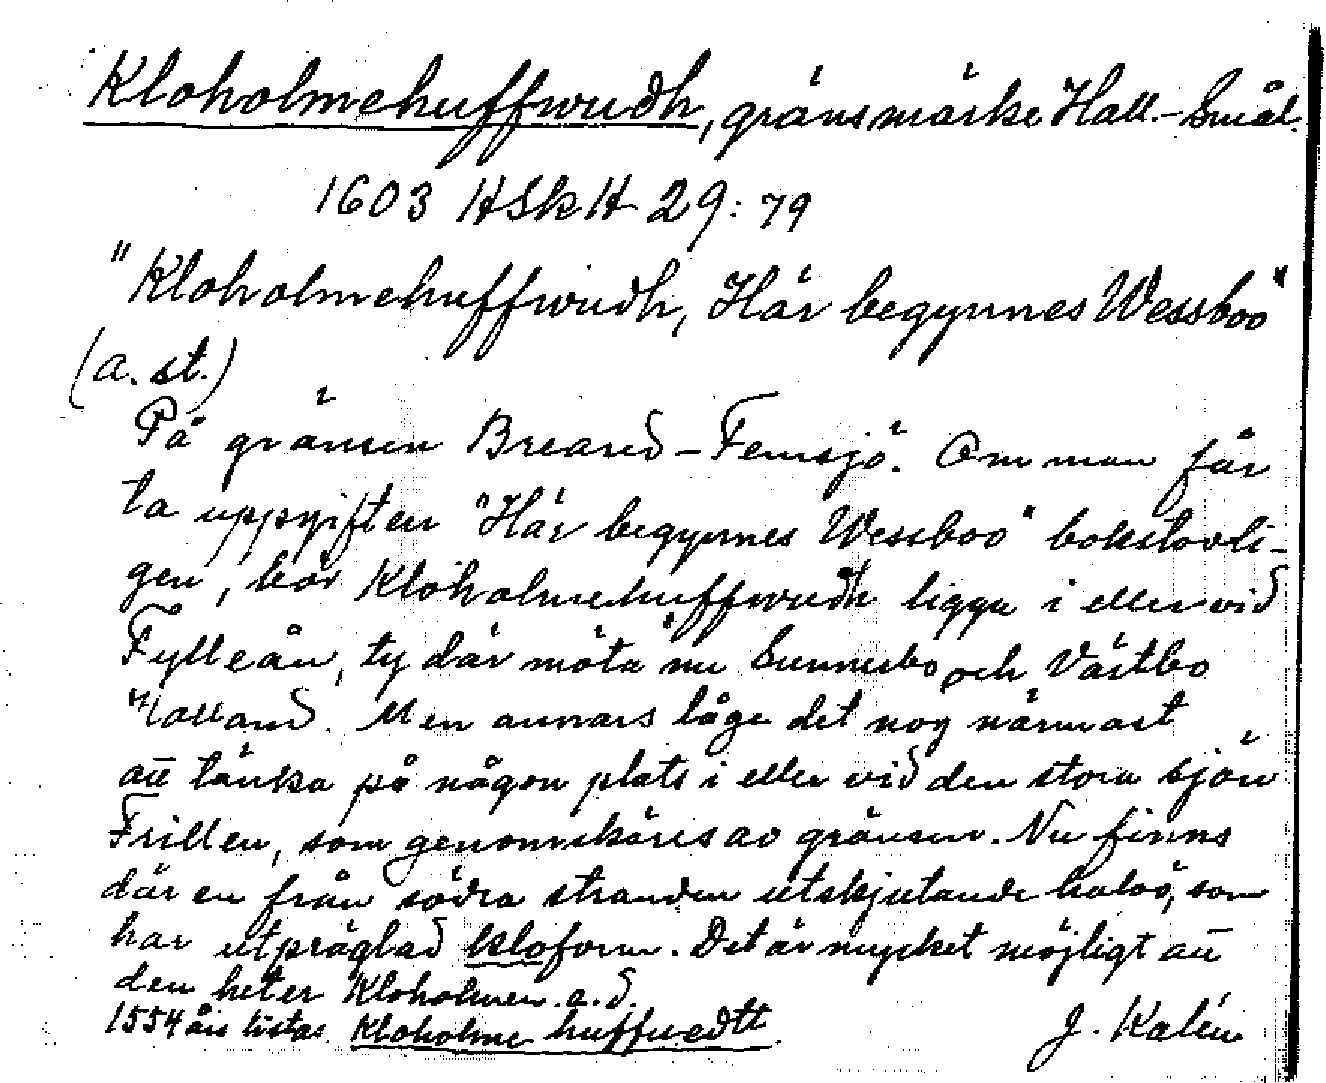 Kloholmehuffwudh, gränsmärke Hall.-Smål.
1603 HSkH 29:79
"Kloholmehuffwudh, Här begynnes Wessboo"
(a. st.)
På gränsen Breared-Femsjö. Om man får
ta uppgiften "Här begynnes Wessboo" bokstavli-
gen, bör Kloholmehuffwudh ligga i eller vid
Fylleån, ty där möta nu Sunnerbo och Västbo
Halland. Men annars låge det nog närmast
att tänka på någon plats i eller vid den stora sjön
Frillen, som genomskäres av gränsen. Nu finns
där en från södra stranden utskjutande halvö, som
har utpräglad kloform. Det är mycket möjligt att
den heter Kloholmen. a.d.
1554 års listas Kloholme huffuedtt
J. Kalén